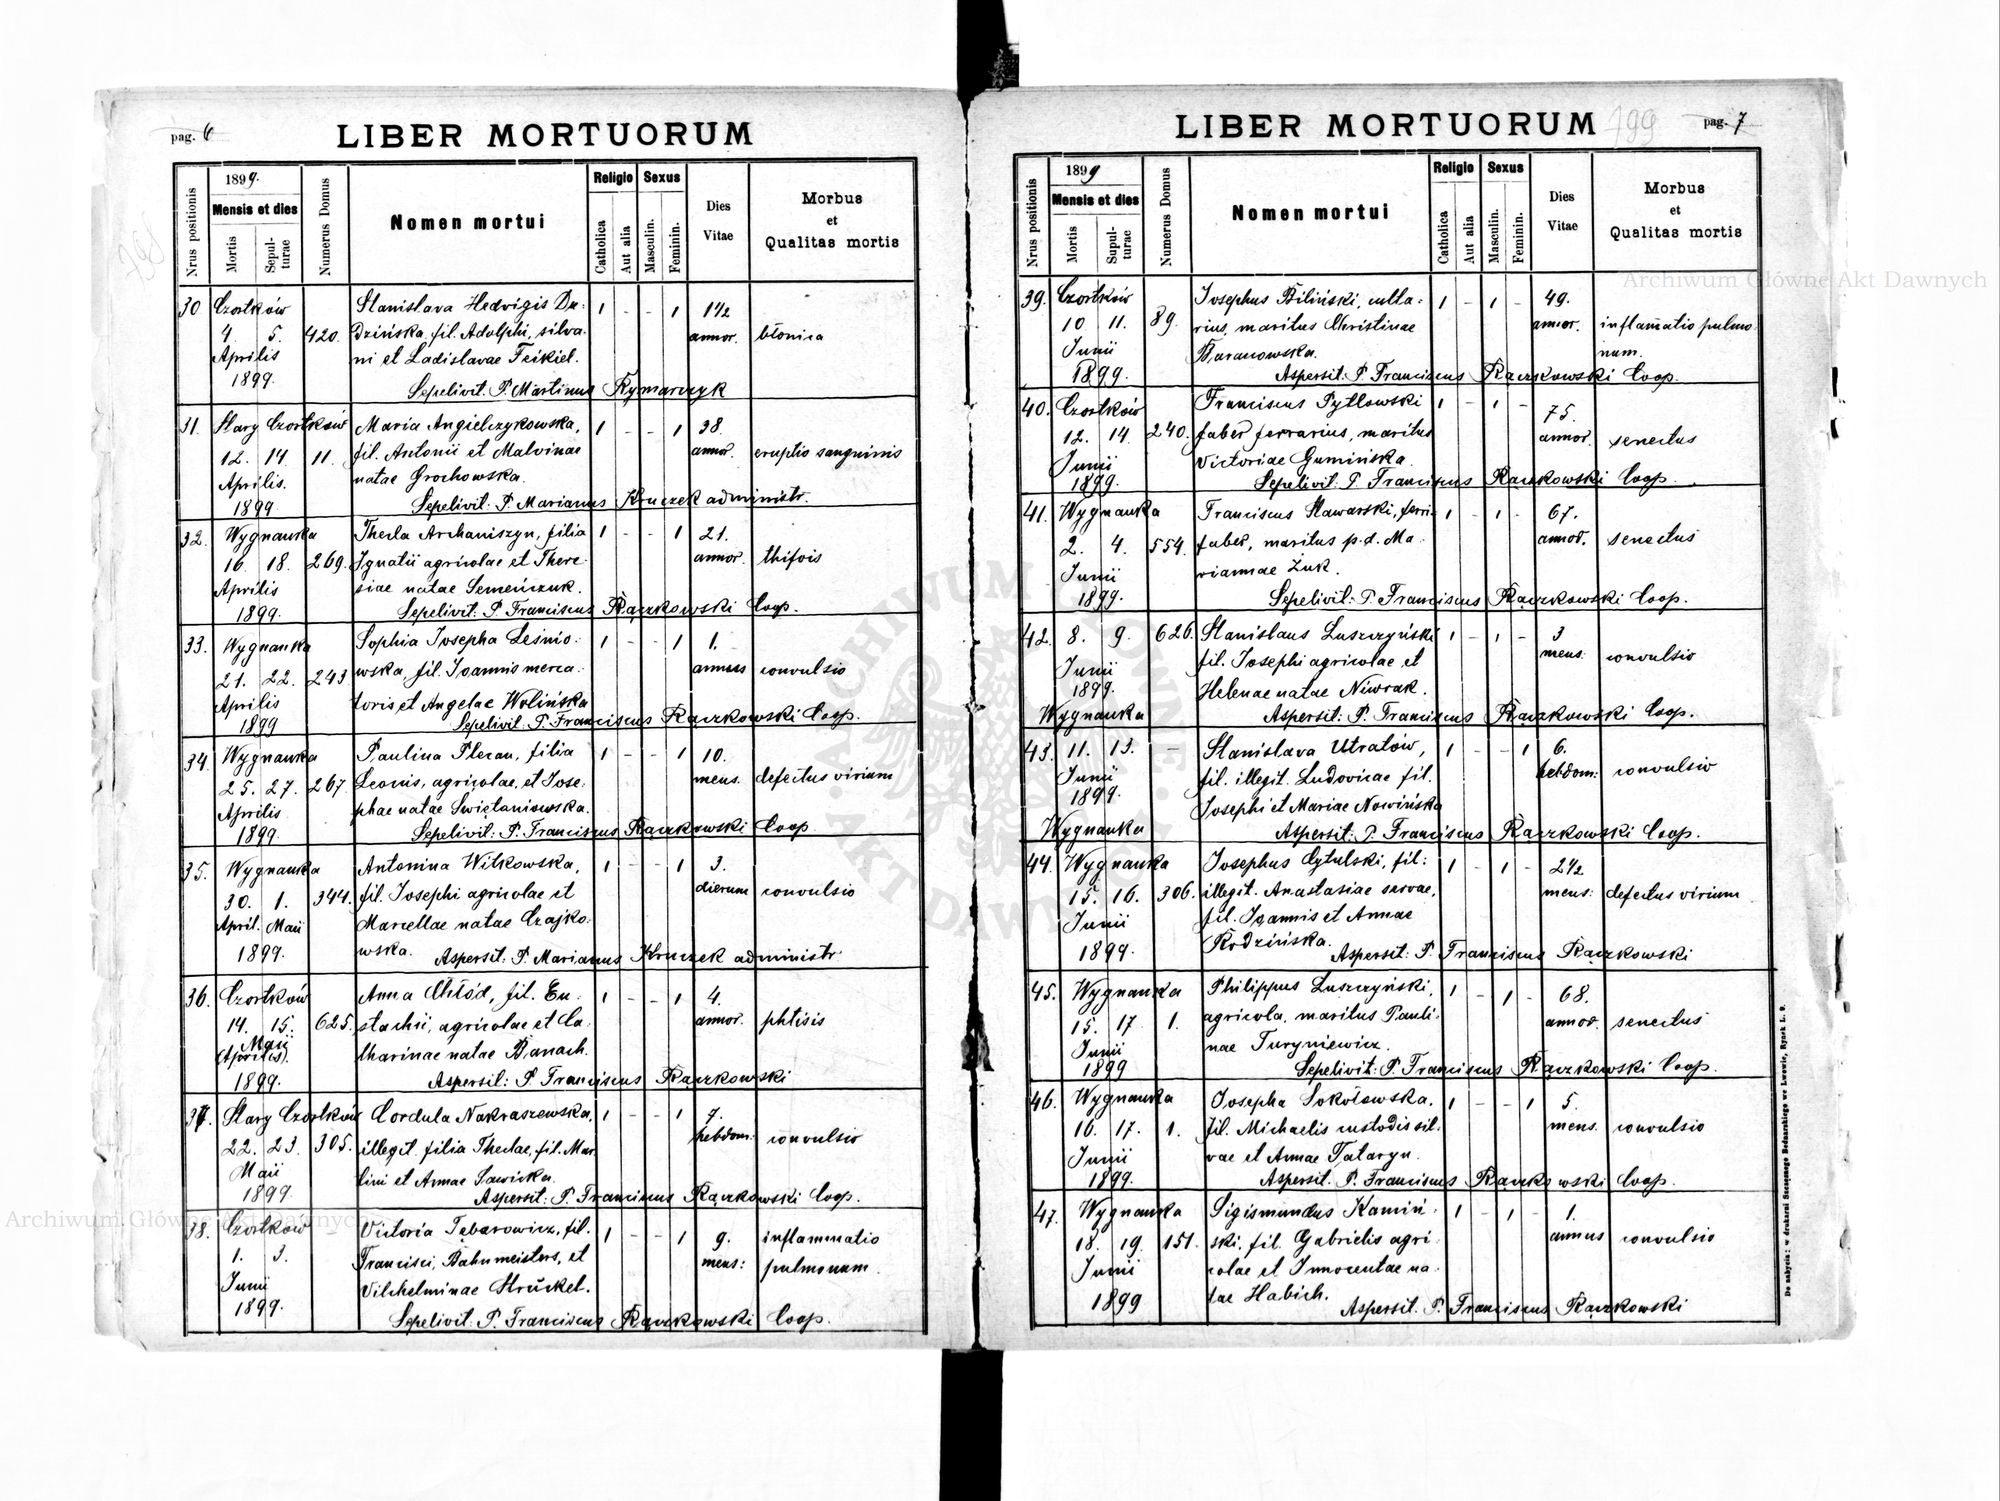 pag. 6
LIBER MORTUORUM
Nrus positionis
1899.
Mensis et dies
Mortis
Sepulturae
Numerus Domus
Nomen mortui
Religio
Catholica
Aut alia
Sexus
Masculin.
Feminin.
Dies Vitae
Morbus et Qualitas mortis
30 Czortków Stanislava Hedvigis Du- 1 - - 1 1 1/2
4. 5. 420. dzińska, fil. Adolphi, silva- annor. błonica
Aprilis ni et Ladislavae Feikiel.
1899. Sepelivit P. Martinus Rymarczyk
31. Stary Czortków Maria Angielczykowska, 1 - - 1 38.
12. 14 11. fil. Antonii et Malvinae annor. eruptio sanguinis
Aprilis. natae Grochowska.
1899. Sepelivit: P. Marianus Kruczek administr.
32. Wygnanka Thecla Archaniszyn, filia 1 - - 1 21.
16. 18. 269. Ignatii agricolae et There- annor. thifois
Aprilis siae natae Semeńczuk.
1899. Sepelivit: P. Franciscus Rączkowski Coop.
33. Wygnanka Sophia Josepha Leśnio- 1 - - 1 1.
21. 22. 243 wska, fil. Joannis merca- annus convulsio
Aprilis toris et Angelae Wolińska
1899 Sepelivit: P. Franciscus Rączkowski Coop.
34. Wygnanka Paulina Pleran, filia 1 - - 1 10.
25. 27. 267. Leonis, agricolae, et Jose- mens. defectus virium
Aprilis phae natae Swiętaniowska.
1899. Sepelivit: P. Franciscus Rączkowski Coop.
35. Wygnanka Antonina Witkowska, 1 - - 1 3.
30. 1. 344. fil. Josephi agricolae et dierum convulsio
April. Maii Marcellae natae Czajko-
1899. wska. Aspersit: P. Marianus Kruczek administr
36. Czortków Anna Chłód, fil. Eu- 1 - - 1 4.
14. 15. 625. stachii, agricolae et Ca- annor. phtisis
Maii
(Aprilis). tharinae natae Banach.
1899. Aspersit: P. Franciscus Rączkowski
37. Stary Czortków Cordula Nakraszewska, 1 - - 1 7.
22. 23. 305. illegit. filia Theclae, fil. Mar- hebdom: convulsio
Maii tini et Annae Sawicka.
1899. Aspersit: P. Franciscus Rączkowski Coop.
38. Czortków - Victoria Tębarowicz, fil. 1 - - 1 9. inflammatio
1. 3. Francisci, Bahnmeisters, et mens: pulmonum.
Junii Vilchelminae Strückel.
1899. Sepelivit: P. Franciscus Rączkowski Coop.
LIBER MORTUORUM
799
pag. 7
Nrus positionis
1899
Mensis et dies
Mortis
Supulturae
Numerus Domus
Nomen mortui
Religio
Catholica
Aut alia
Sexus
Masculin.
Feminin.
Dies Vitae
Morbus et Qualitas mortis
39. Czortków Josephus Biliński, culta- 1 - 1 - 49.
10 11. 89. rius, maritus Christinae annor. inflamatio pulmo-
Junii Baranowska. num.
1899. Aspersit: P. Franciscus Rączkowski Coop.
40. Czortków Franciscus Pytlowski 1 - 1 - 75.
12. 14. 240. faber ferrarius, maritus annor. senectus
Junii Victoriae Gumińska.
1899. Sepelivit: P. Franciscus Rączkowski Coop.
41. Wygnanka Franciscus Stawarski, ferri- 1 - 1 - 67.
2. 4. 554. faber, maritus p.d. Ma- annor. senectus
Junii riannae Żuk.
1899. Sepelivit: P. Franciscus Rączkowski Coop.
42. 8. 9. 626. Stanislaus Luszczyński 1 - 1 - 3
Junii fil. Josephi agricolae et mens: convulsio
1899. Helenae natae Niwrak.
Wygnanka Aspersit: P. Franciscus Rączkowski Coop.
43. 11. 13. - Stanislava Utratów, 1 - - 1 6.
Junii fil. illegit. Ludovicae fil. hebdom: convulsio
1899. Josephi et Mariae Nowińska
Wygnanka Aspersit: P. Franciscus Rączkowski Coop.
44. Wygnanka Josephus Cytulski, fil: 1 - 1 - 2 1/2
15. 16. 306. illegit. Anastasiae servae, mens: defectus virium
Junii fil. Joannis et Annae
1899. Rodzińska. Aspersit: P. Franciscus Rączkowski
45. Wygnanka Philippus Luszczyński, 1 - 1 - 68.
15. 17 1. agricola, maritus Pauli- annor. senectus
Junii nae Turyniewicz.
1899 Sepelivit: P. Franciscus Rączkowski Coop.
46. Wygnanka Josepha Sokołowska. 1 - - 1 5.
16. 17. 1. fil. Michaelis custodis sil- mens. convulsio
Junii vae et Annae Tataryn.
1899. Aspersit. P. Franciscus Rączkowski Coop.
47. Wygnanka Sigismundus Kamiń- 1 - 1 - 1.
18. 19. 151. ski, fil. Gabrielis agri- annus convulsio
Junii colae et Innocentae na-
1899 tae Habich. Aspersit. P. Franciscus Rączkowski
Do nabycia: w drukarni Szczęsnego Bednarskiego we Lwowie, Rynek L. 9.
Archiwum Główne Akt Dawnych
Archiwum Główne Akt Dawnych
ARCHIWUM GŁÓWNE AKT DAWNYCH